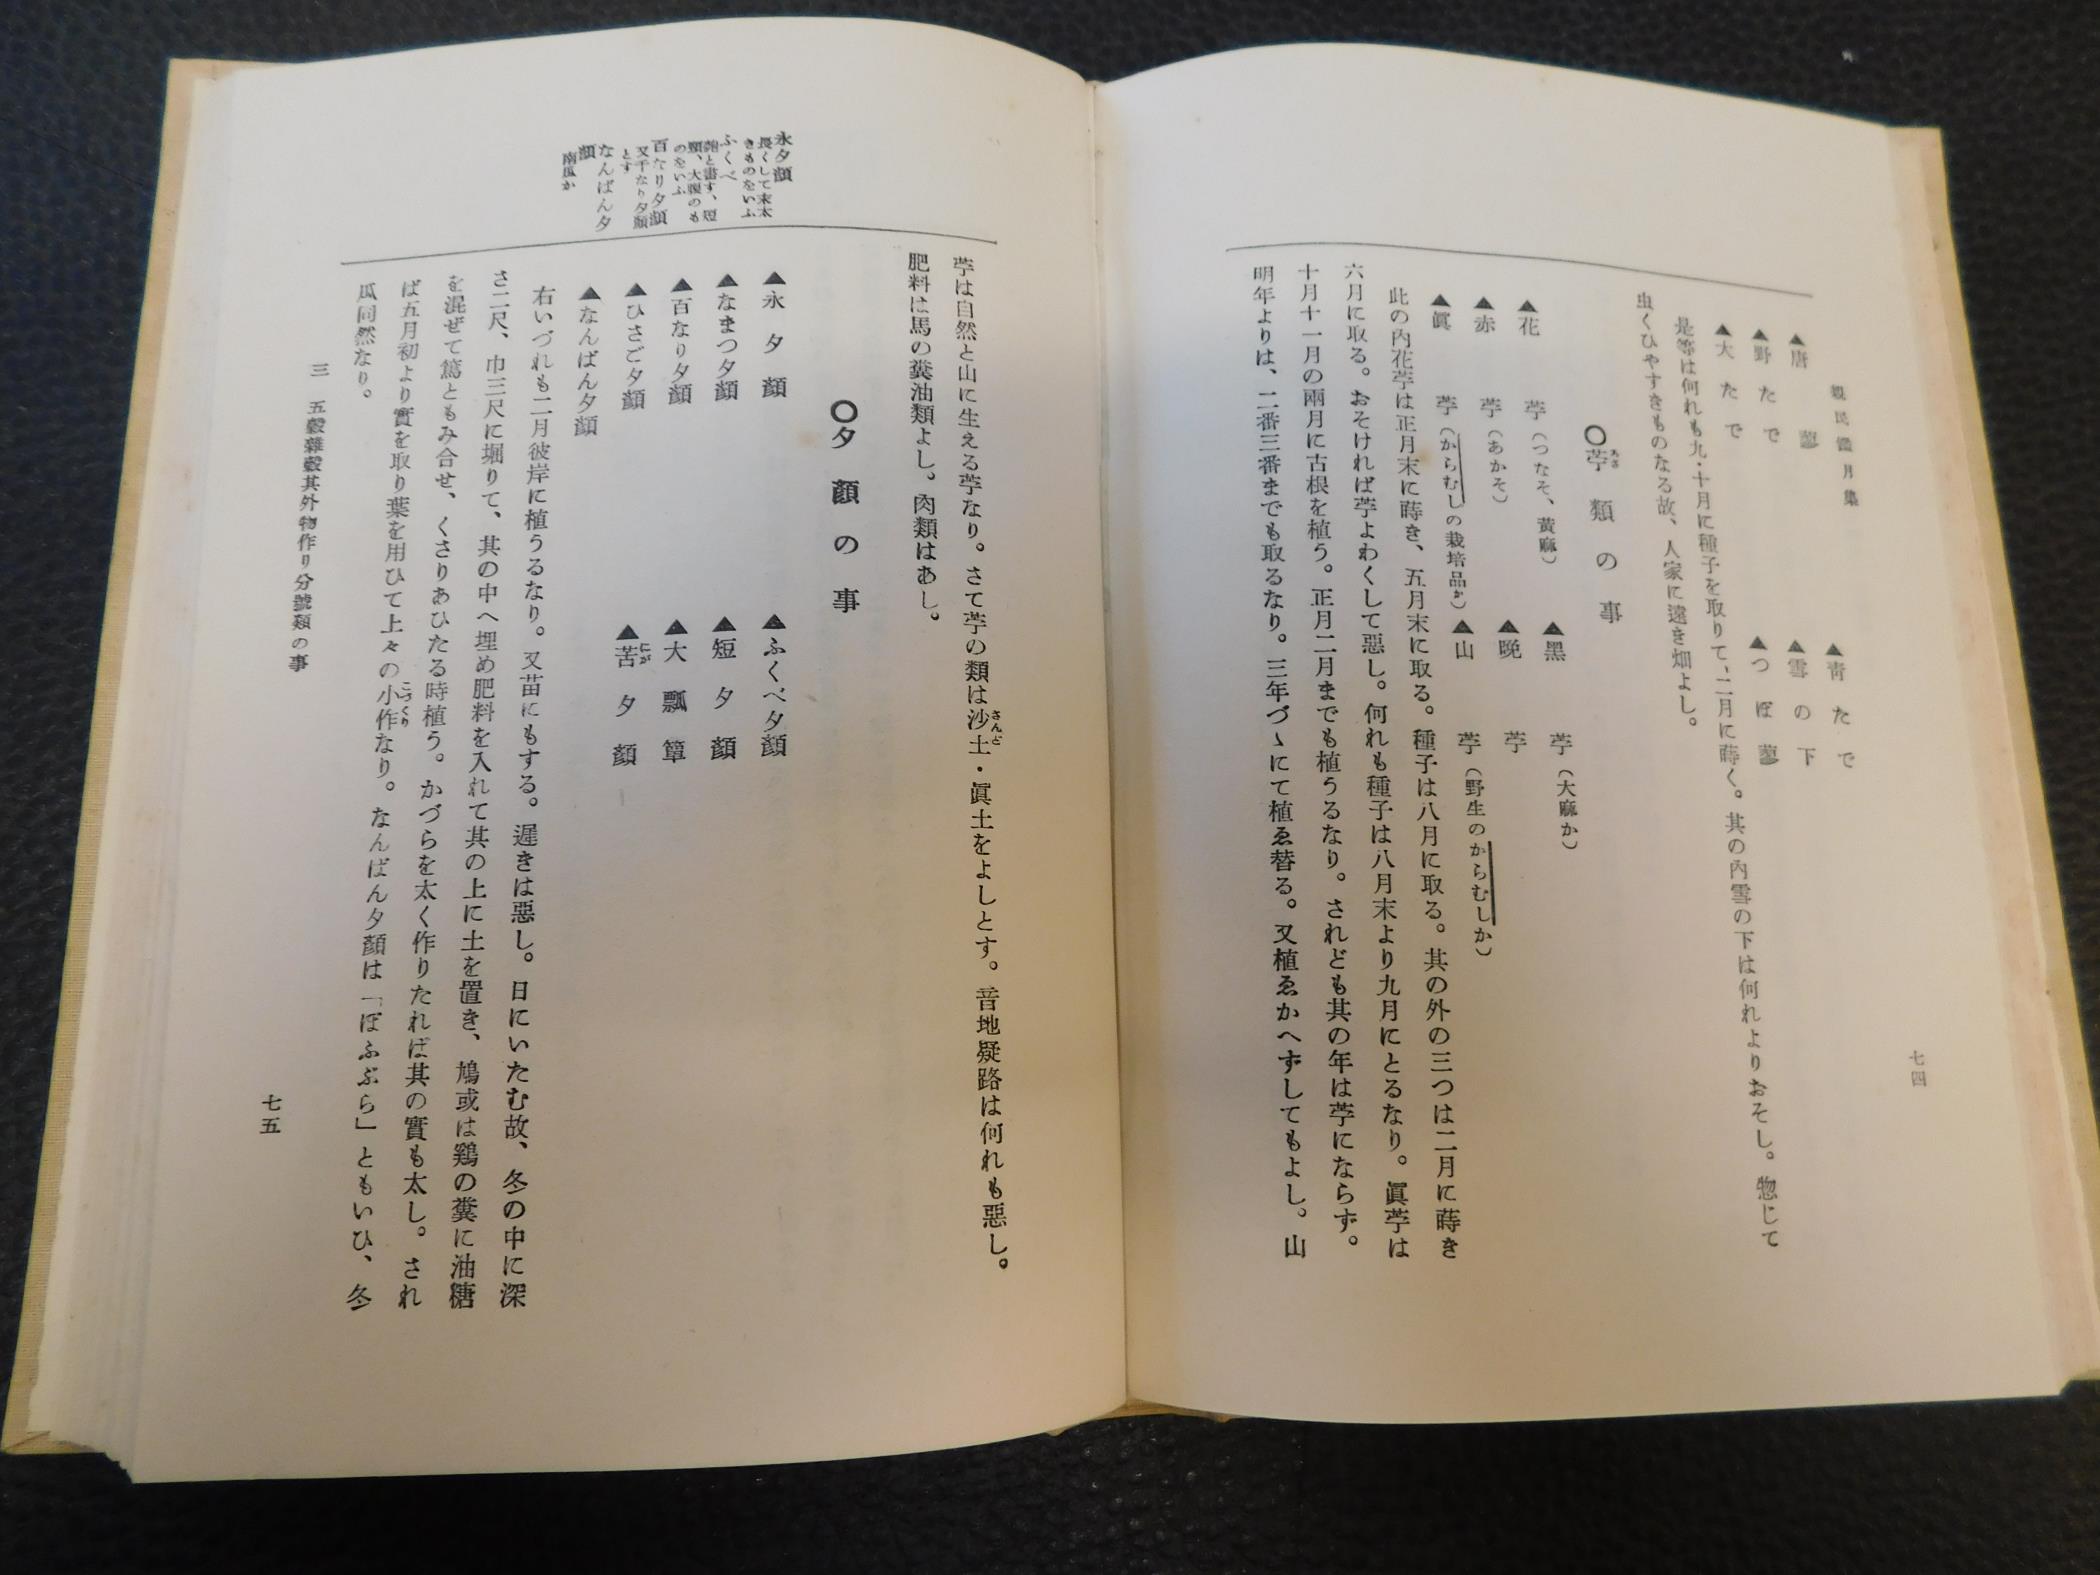 親民鑑月集
七四
▲唐蓼
▲靑たで
▲野たで
▲雪の下
▲大たで
▲つぼ蓼
是等は何れも九・十月に種子を取りて、二月に蒔く。其の內雪の下は何れよりおそし。惣じて
虫くひやすきものなる故、人家に遠き畑よし。
〇苧類の事
▲花苧(つなそ、黃麻)
▲黑苧(大麻か)
▲赤苧(あかそ)
▲晩苧
▲眞苧(からむしの栽培品か)
▲山苧(野生のからむしか)
此の內花苧は正月末に蒔き、五月末に取る。種子は八月に取る。其の外の三つは二月に蒔き
六月に取る。おそければ苧よわくして惡し。何れも種子は八月末より九月にとるなり。眞苧は
十月十一月の兩月に古根を植う。正月二月までも植うるなり。されども其の年は苧にならず。
明年よりは、二番三番までも取るなり。三年づゝにて植ゑ替る。又植ゑかへずしてもよし。山
苧は自然と山に生える苧なり。さて苧の類は沙土・眞土をよしとす。音地疑路は何れも惡し。
さんど
肥料は馬の糞油類よし。肉類はあし。
〇夕顏の事
永夕顏
長くして末太
きものをいふ
ふくべ
匏と書す、短
頸、大腹のも
のをいふ
百なり夕顏
又千なり夕顏
とす
なんばん夕
顏
南瓜か
▲永夕顏
▲ふくべ夕顏
▲なまつ夕顏
▲短夕顏
▲百なり夕顏
▲大瓢簞
▲ひさご夕顏
▲苦夕顏
にが
▲なんばん夕顏
右いづれも二月彼岸に植うるなり。又苗にもする。遲きは惡し。日にいたむ故、冬の中に深
さ二尺、巾三尺に堀りて、其の中へ埋め肥料を入れて其の上に土を置き、鳩或は鷄の糞に油糖
を混ぜて篤ともみ合せ、くさりあひたる時植う。かづらを太く作りたれば其の實も太し。され
ば五月初より實を取り葉を用ひて上々の小作なり。なんばん夕顏は「ぼふぶら」ともいひ、冬
こつくり
瓜同然なり。
三 五穀雜穀其外物作り分號類の事
七五